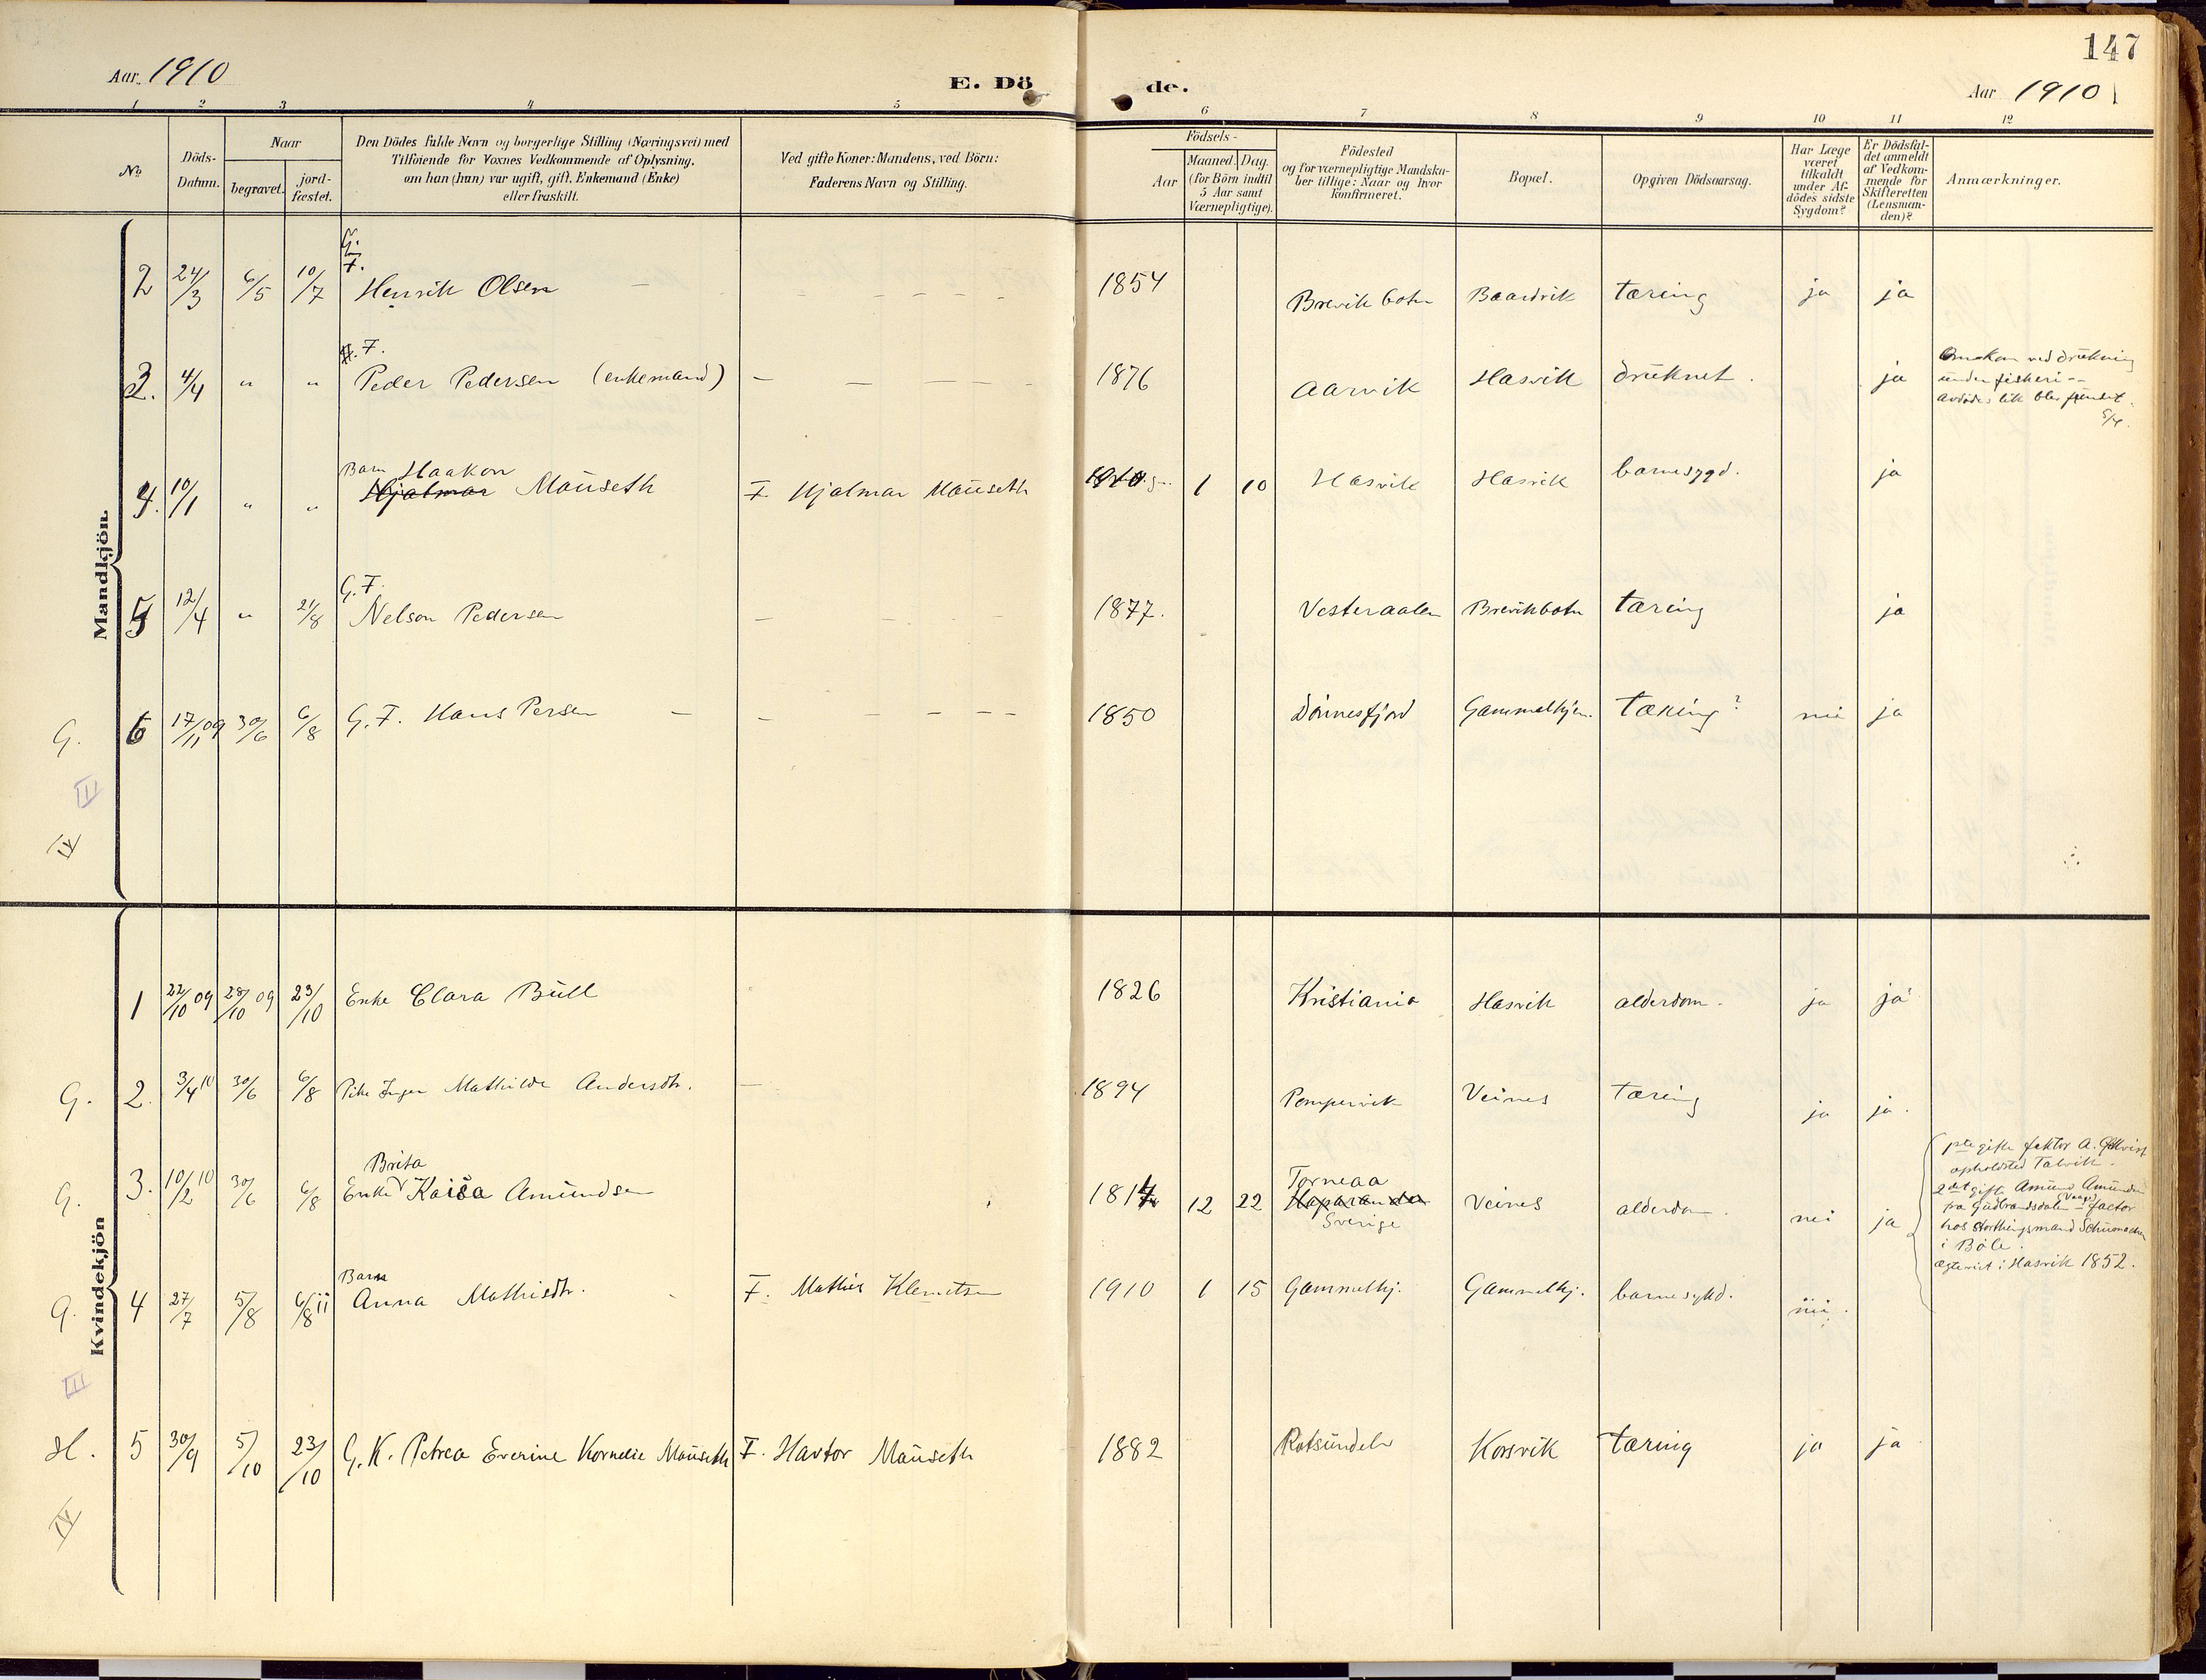 147
Aar. 1910
E. Dö
de.
Aar 1910
1 2 3 4 5 6 7 8 9 10 11 12
No
Döds-Datum.
Naar
begravet.
jord-fæstet.
Den Dödes fulde Navn og borgerlige Stilling (Næringsvei) med
Tilföiende for Voxnes Vedkommende af Oplysning,
om han (hun) var ugift, gift, Enkemand (Enke)
eller fraskilt.
Ved gifte Koner: Mandens, ved Börn:
Faderens Navn og Stilling.
Födsels-
Aar
Maaned. Dag.
(for Börn indtil
5 Aar samt
Værnepligtige).
Födested
og for værnepligtige Mandska-
ber tillige: Naar og hvor
konfirmeret.
Bopæl.
Opgiven Dödsaarsag.
Har Læge
været
tilkaldt
under Af-
dödes sidste
Sygdom?
Er Dödsfal-
det anmeldt
af Vedkom-
mende for
Skifteretten
(Lensman-
den)?
Anmærkninger.
Mandkjön.
G. F.
2 24/3 6/5 10/7 Henrik Olsen 1854 Brevikbotn Baardvik tæring ja ja
F.
3. 4/4 " " Peder Pedersen (enkemand) 1876 Aarvik Hasvik druknet. ja
Omkom ved drukning
under fiskeri --
avdødes lik blev
Barn Haakon
4. 10/1 " " Hjalmar Mauseth F. Hjalmar Mauseth 1 10 Hasvik Hasvik barnesygd. ja
G. F.
5 12/4 " 21/8 Nelson Pedersen 1877. Vesteraalen Brevikbotn tæring ja
G. 6 17/11 09 30/6 6/8 G. F. Hans Persen 1850 Dönnesfjord Gammelhjem. Tæring? nei ja
II
IV
Kvindekjön
1 22/10 09 28/10 09 23/10 Enke Clara Bull 1826 Kristiania Hasvik alderdom. ja ja
G. 2. 3/4 10 30/6 6/8 Pike Inger Mathilde Andersdtr. 1894 Veines Tæring ja ja.
Brita
G. 3. 10/2 10 30/6 6/8 Enke Kaisa Amundsen 12 22 Torneaa
Haparanda
Sverige Veines alderdom. nei ja
1ste gifte faktor A.
opholdsted Talvik.
2det gift Amund Amundsen
fra Gudbrandsdalen (Vaage) - factor
hos storthingsmand
i Bole.
ægteviet i Hasvik 1852.
Barn
G. 4 27/7 5/8 6/8 11 Anna Mathisdtr. F. Mathis Klemetsen 1910 1 15 Gammelhj. Gammelhj. barnesykd. nei.
III
H. 5 30/9 5/10 23/10 G. K. Petrea Everine Kornelie Mauseth F. Havtor Mauseth 1882 Rotsundelv Korsvik Tæring ja ja
IV